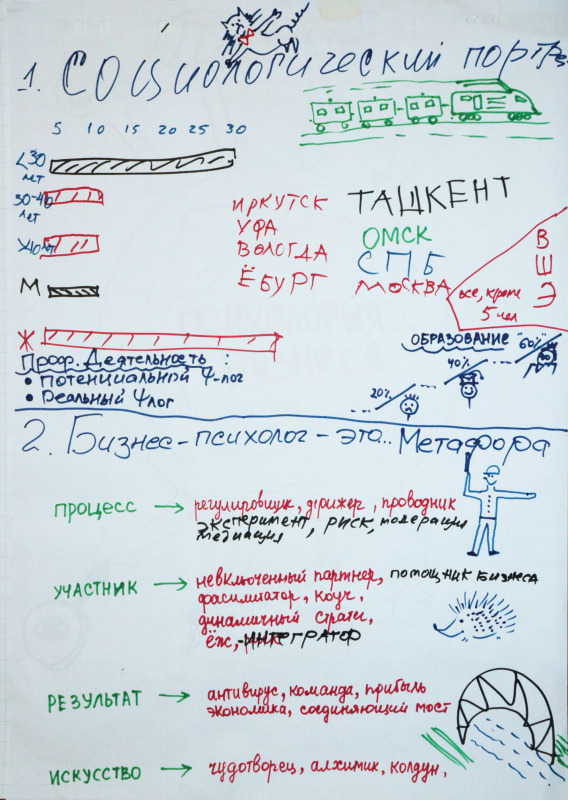 1. Социологический портре
5 10 15 20 25 30
<30 лет
30-40 лет
>40 лет
М
Ж
ИРКУТСК
УФА
ВОЛОГДА
ЁБУРГ
ТАШКЕНТ
ОМСК
СПБ
МОСКВА
В
Ш
Э
все, кроме
5 чел
Проф. Деятельность :
• Потенциальной Ψ-лог
• Реальный Ψлог
ОБРАЗОВАНИЕ
20% ... 40% ... 60%
2. Бизнес-психолог - это.. Метафора
ПРОЦЕСС → регулировщик, дирижер, проводник
эксперимент, риск, модерация
медиация
УЧАСТНИК → невключенный партнер, помощник бизнеса
фасилитатор, коуч,
динамичный стратег,
ёж, -ИНТЕГРАТОР
РЕЗУЛЬТАТ → антивирус, команда, прибыль
экономика, соединяющий мост
ИСКУССТВО → чудотворец, алхимик, колдун,